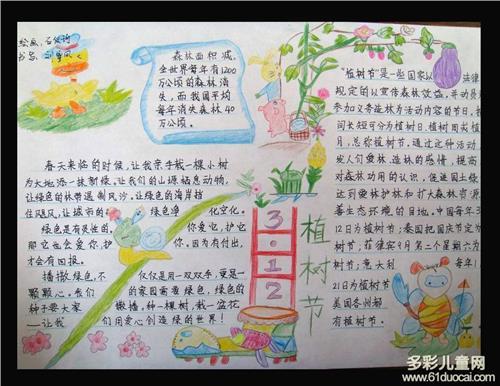 绘画:
书写:
森林面积减,
全世界每年有1200
万公顷的森林消
失,而我国平均
每年消失森林40
万公顷。
"植树节"是一些国家以法律
规定的以宣传森林效益,并动员
参加义务造林为活动内容的节日,
间长短可分为植树日、植树周或植
月,总称植树节。通过这种活动
发人们爱林、造林的感情,提高
对森林功用的认识,促进国土绿
达到爱林护林和扩大森林资源
善生态环境的目地。中国每年3
12日为植树节;泰国把国庆节定
树节;菲律宾9月第二个星期六为
树节;意大利每年1
21日为植树节
美国各州都
有植树节。
春天来临的时候,让我亲手栽一棵小树
为大地添一抹新绿,让我们的山顶栖息动物,
让绿色的林带遏制风沙,让绿色的海岸挡
住飓风,让城市的绿色净化空气。
绿色是有灵性的,你爱它,护它
那它也会爱你,护你。因为有付出,
才会有回报。
播撒绿色,不仅仅是一双双手,更是一
颗颗心。我们的家园需要绿色,绿色的
种子要大家撒播,种一棵树,栽一盆花
——让我们用爱心创造绿的世界!
3·12
植树节
多彩儿童网
www.61duocai.com